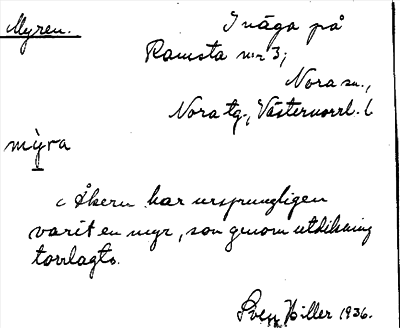 Myren.
I näga på
Ramsta n:r 3;
Nora sn.,
Nora tg., Västernorrl. l
mỳra
c Åkern har ursprungligen
varit en myr, som genom utdikning
torrlagts.
Sven Hiller 1936.